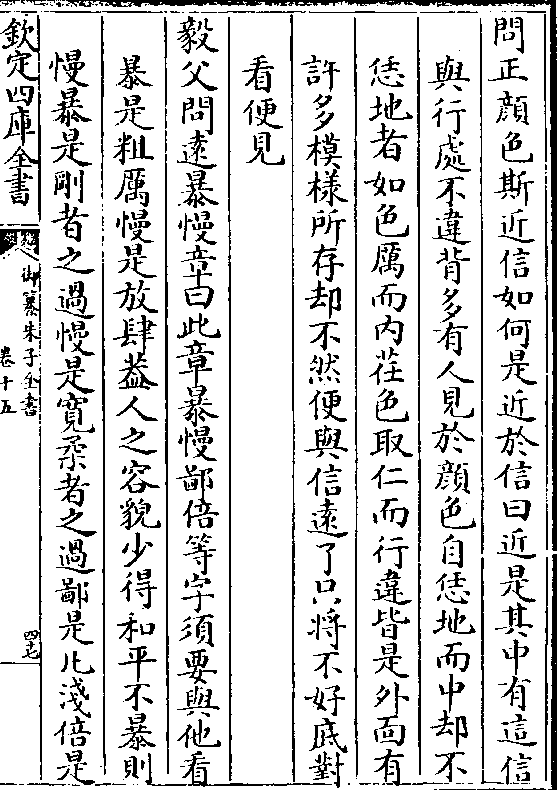 問正顔色斯近信如何是近於信曰近是其中有這信
與行處不違背多有人見於顔色自恁地而中却不
恁地者如色厲而内荏色取仁而行違皆是外面有
許多模様所存却不然便與信遠了只將不好底對
看便見
毅父問遠暴慢章曰此章暴慢鄙倍等字須要與他看
暴是粗厲慢是放肆葢人之容貌少得和平不暴則
慢暴是剛者之過慢是寛柔者之過鄙是凡淺倍是
欽定四庫全書
御纂朱子全書
卷十五
四七